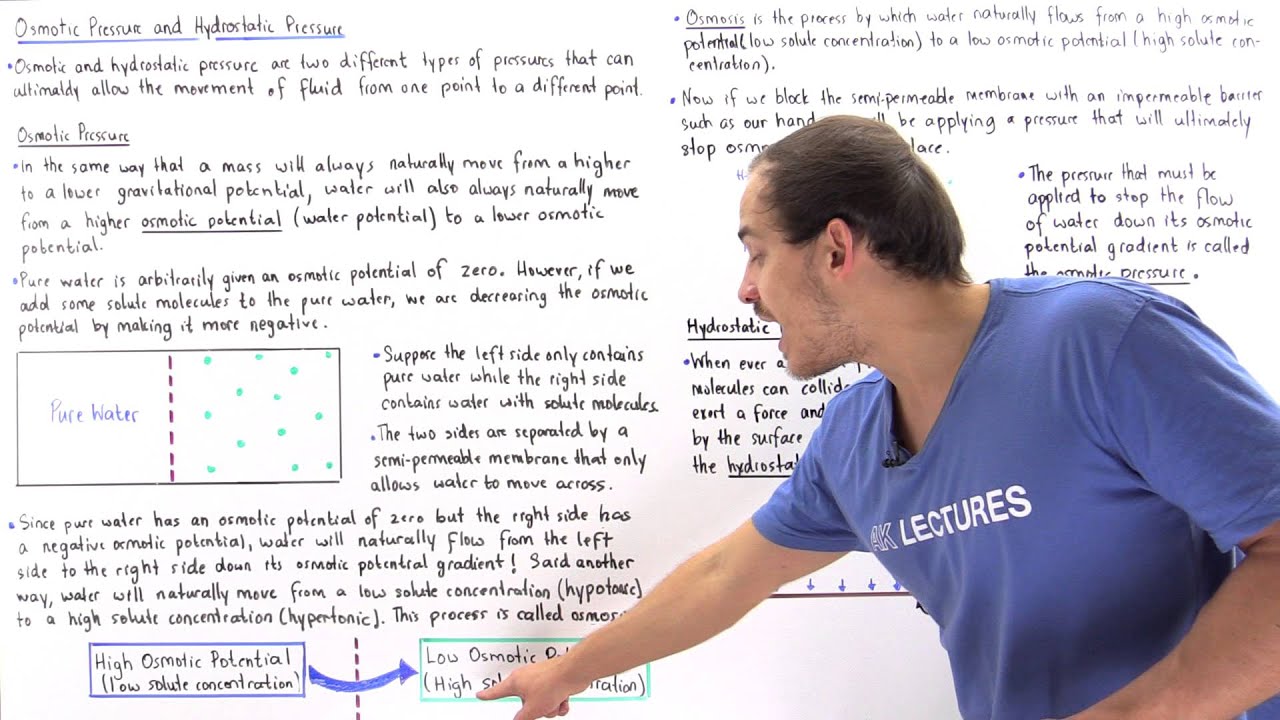 Osmotic Pressure and Hydrostatic Pressure
•Osmotic and hydrostatic pressure are two different types of pressures that can
ultimately allow the movement of fluid from one point to a different point.
Osmotic Pressure
•In the same way that a mass will always naturally move from a higher
to a lower gravitational potential, water will also always naturally move
from a higher osmotic potential (water potential) to a lower osmotic
potential.
•Pure water is arbitrarily given an osmotic potential of zero. However, if we
add some solute molecules to the pure water, we are decreasing the osmotic
potential by making it more negative.
Pure Water
•Suppose the left side only contains
pure water while the right side
contains water with solute molecules.
•The two sides are separated by a
semi-permeable membrane that only
allows water to move across.
•Since pure water has an osmotic potential of zero but the right side has
a negative osmotic potential, water will naturally flow from the left
side to the right side down its osmotic potential gradient! Said another
way, water will naturally move from a low solute concentration (hypotonic)
to a high solute concentration (hypertonic). This process is called
High Osmotic Potential
(low solute concentration)
Low Osmotic
(High
•Osmosis is the process by which water naturally flows from a high osmotic
potential (low solute concentration) to a low osmotic potential (high solute con-
centration).
•Now if we block the semi-permeable membrane with an impermeable barrier
such as our hand be applying a pressure that will ultimately
stop
•The pressure that must be
applied to stop the flow
of water down its osmotic
potential gradient is called
the osmotic pressure.
Hydrostatic
•When ever a
molecules can
exert a force and
by the surface
the
AK LECTURES